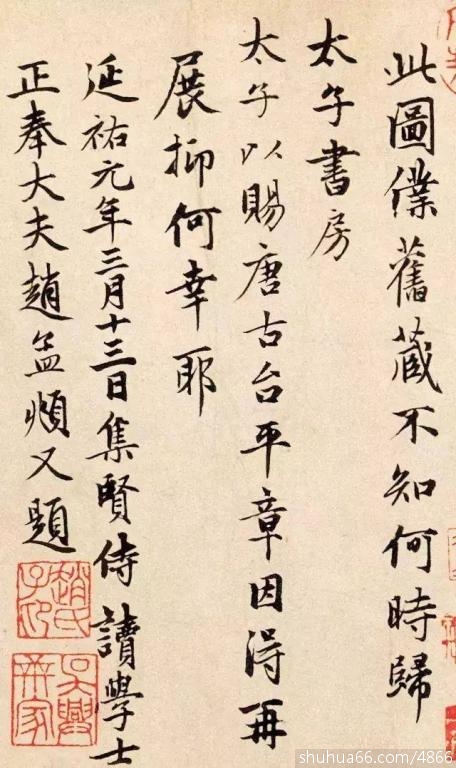 此圖僕舊藏不知何時歸
太子書房
太子以賜唐古台平章因得再
展抑何幸耶
延祐元年三月十三日集賢侍讀學士
正奉大夫趙孟頫又題
趙氏子昂
shuhua66.com/4866